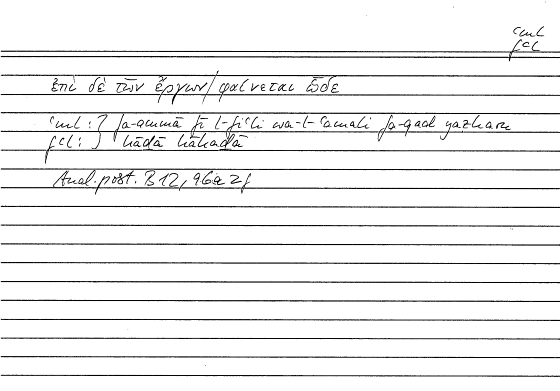 ʿml
fʿl
ἐπὶ δὲ τῶν ἔργων / φαίνεται ὧδε
ʿml : } fa-ammā fī l-fiʿli wa-l-ʿamali fa-qad yaẓharu
fʿl : } hāḏā hākaḏā
Anal. post. B 12, 96a 2f